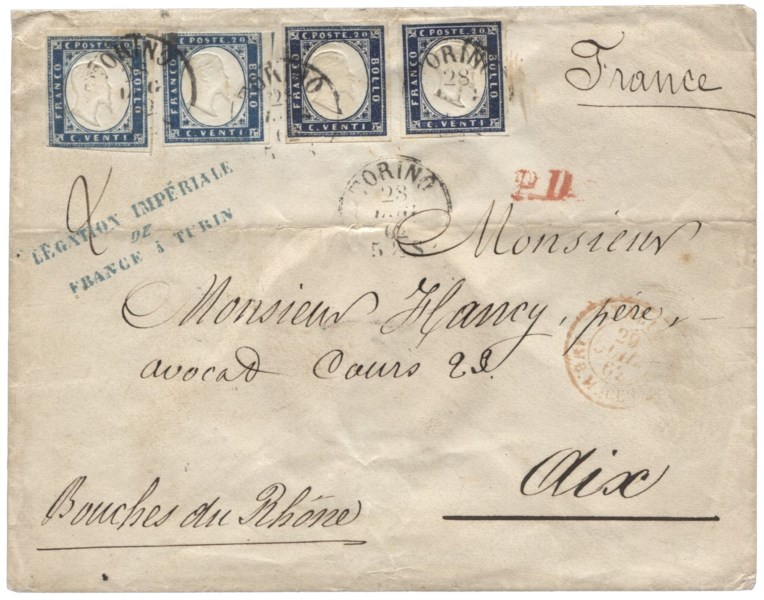 C. POSTE. 20
FRANCO
BOLLO
C. VENTI
C. POSTE. 20
FRANCO
BOLLO
C. VENTI
C. POSTE. 20
FRANCO
BOLLO
C. VENTI
C. POSTE. 20
FRANCO
BOLLO
C. VENTI
TORINO
28
France
P.D.
2
LÉGATION IMPÉRIALE
DE
FRANCE à TURIN
TORINO
28
Monsieur
Monsieur Hancy, père,
avocat Cours 22
29
Aix
Bouches du Rhône